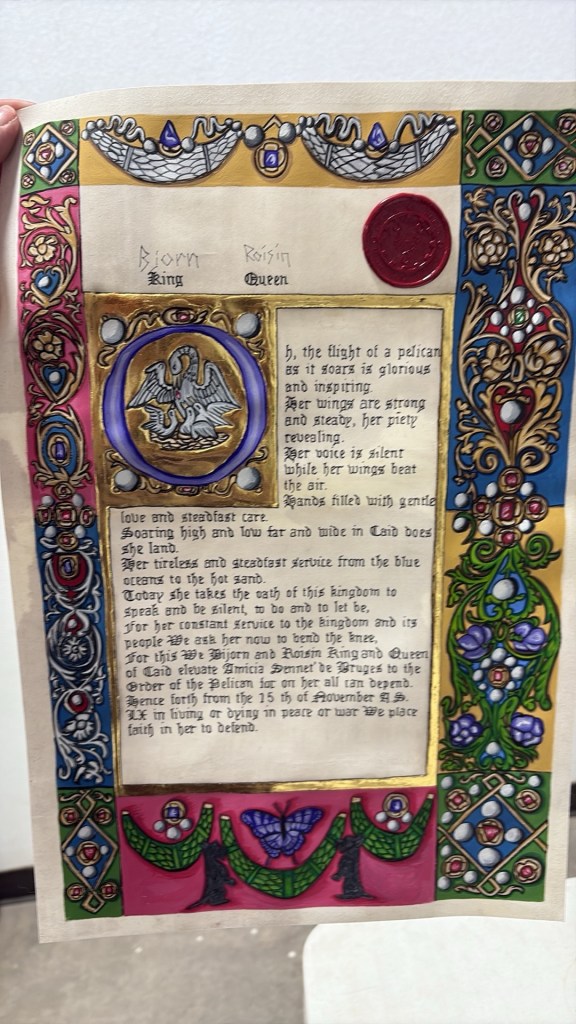 Bjorn Roisin
King Queen
Oh, the flight of a pelican
as it soars is glorious
and inspiring.
Her wings are strong
and steady, her piety
revealing.
Her voice is silent
while her wings beat
the air.
Hands filled with gentle
love and steadfast care.
Soaring high and low far and wide in Caid does
she land.
Her tireless and steadfast service from the blue
oceans to the hot sand.
Today she takes the oath of this kingdom to
speak and be silent, to do and to let be,
for her constant service to the kingdom and its
people We ask her now to bend the knee,
For this We Bijorn and Roisin King and Queen
of Caid elevate Amicia Sennet de Bruges to the
Order of the Pelican for on her all can depend.
Hence forth from the 15 th of November A.S.
LX in living or dying in peace or war We place
faith in her to defend.